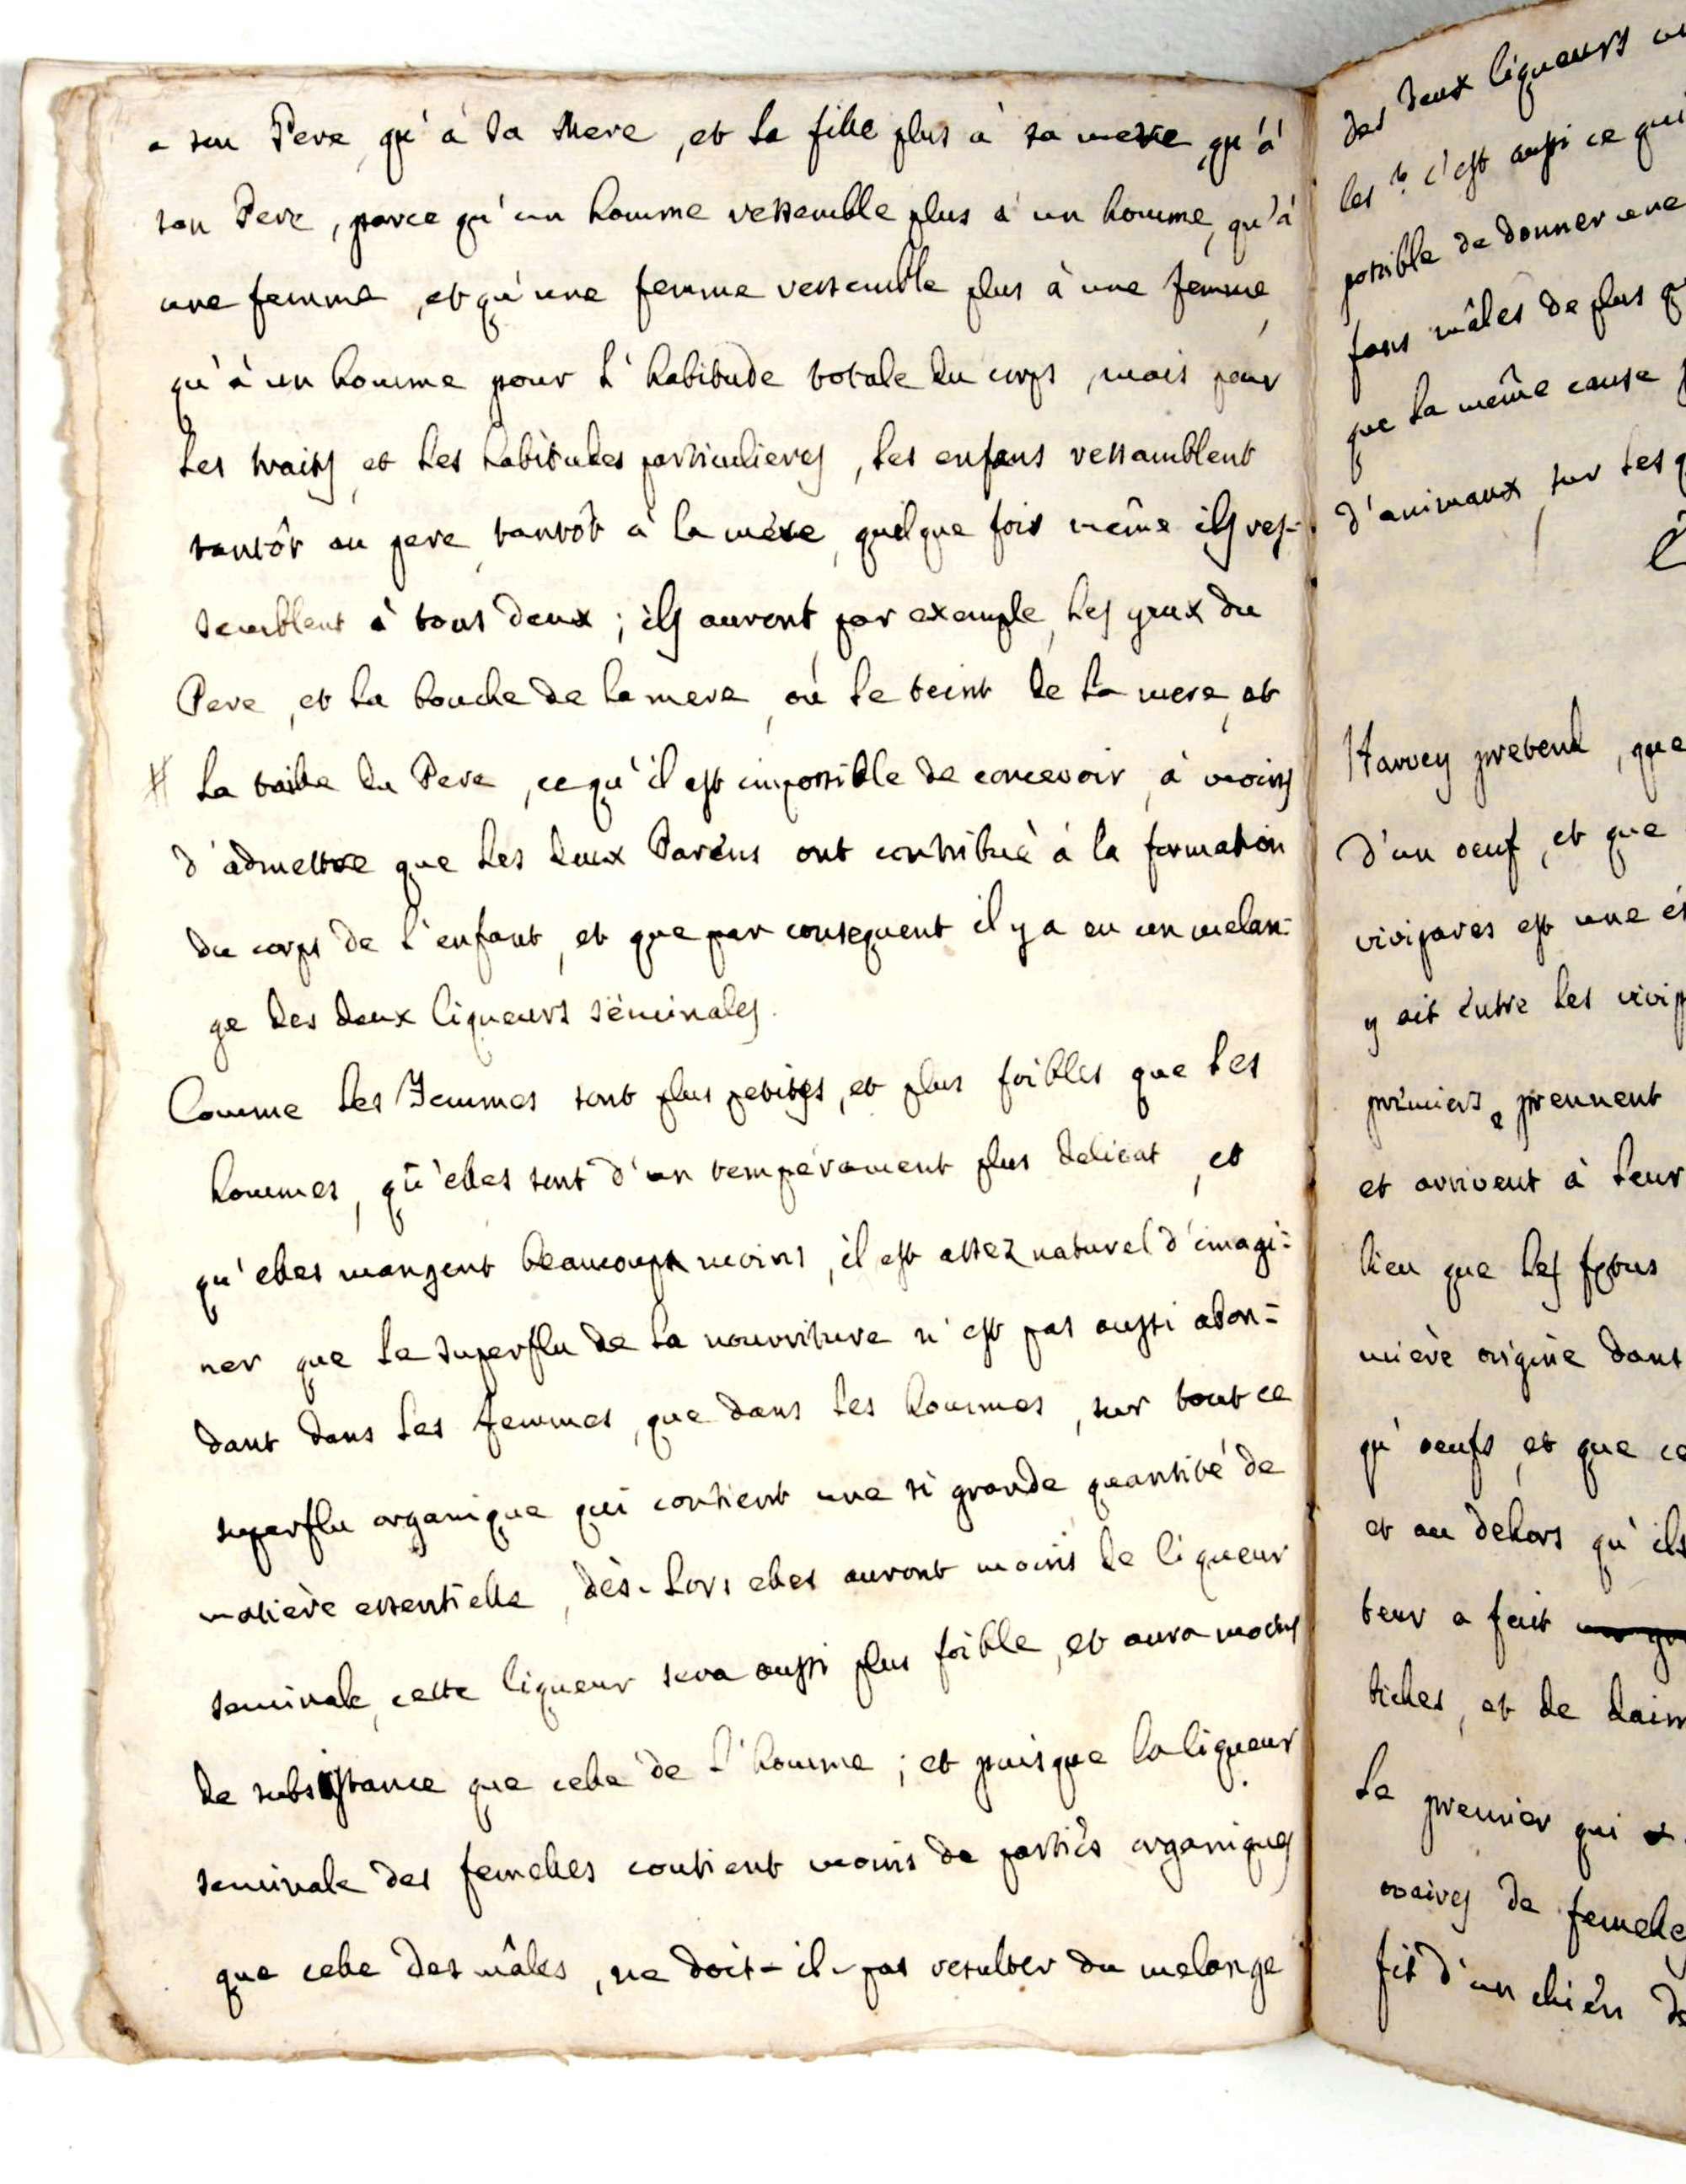 a son Pere, qu'à sa Mere, et la fille plus à sa mere, qu'à
son Pere, parce qu'un homme ressemble plus à un homme, qu'à
une femme, et qu'une femme ressemble plus à une femme,
qu'à un homme pour l'habitude totale du corps, mais pour
les traits et les habitudes particulieres, les enfans ressamblent
tantôt au pere, tantôt à la mere, quelque fois même ils res-
semblent à tous deux; ils auront, par exemple, les yeux du
Pere, et la bouche de la mere, ou le teint de la mere, et
# la taille du Pere, ce qu'il est impossible de concevoir, à moins
d'admettre que les deux Parens ont contribué à la formation
du corps de l'enfant, et que par consequent il y a eu un melan=
ge des deux liqueurs séminales.
Comme les Femmes sont plus petites, et plus foibles que les
hommes, qu'elles sont d'un tempérament plus delicat, et
qu'elles mangent beaucoup moins, il est assez naturel d'imagi=
ner que le superflu de la nourriture n'est pas aussi abon=
dant dans les femmes, que dans les hommes, sur tout ce
superflu organique qui contient une si grande quantité de
matière essentielle, dès-lors elles auront moins de liqueur
seminale, cette liqueur sera aussi plus foible, et aura moins
de subsistance que celle de l'homme; et puisque la liqueur
seminale des femelles contient moins de parties organiques
que celle des mâles, ne doit-il-pas resulter du melange
des deux liqueurs
les? c'est aussi ce qui
possible de donner une
fans mâles de plus
que la même cause
d'animaux sur les
Harvey pretend, que
d'un oeuf, et que
vivipares est une
y ait entre les
premiers prennent
et arrivent à leur
lieu que les fœtus
mière origine dans
qu'oeufs, et que ce
et au dehors qu'ils
teur a fait
biches, et de daim
Le premier qui
ovaires de femelle
fit d'un chien de